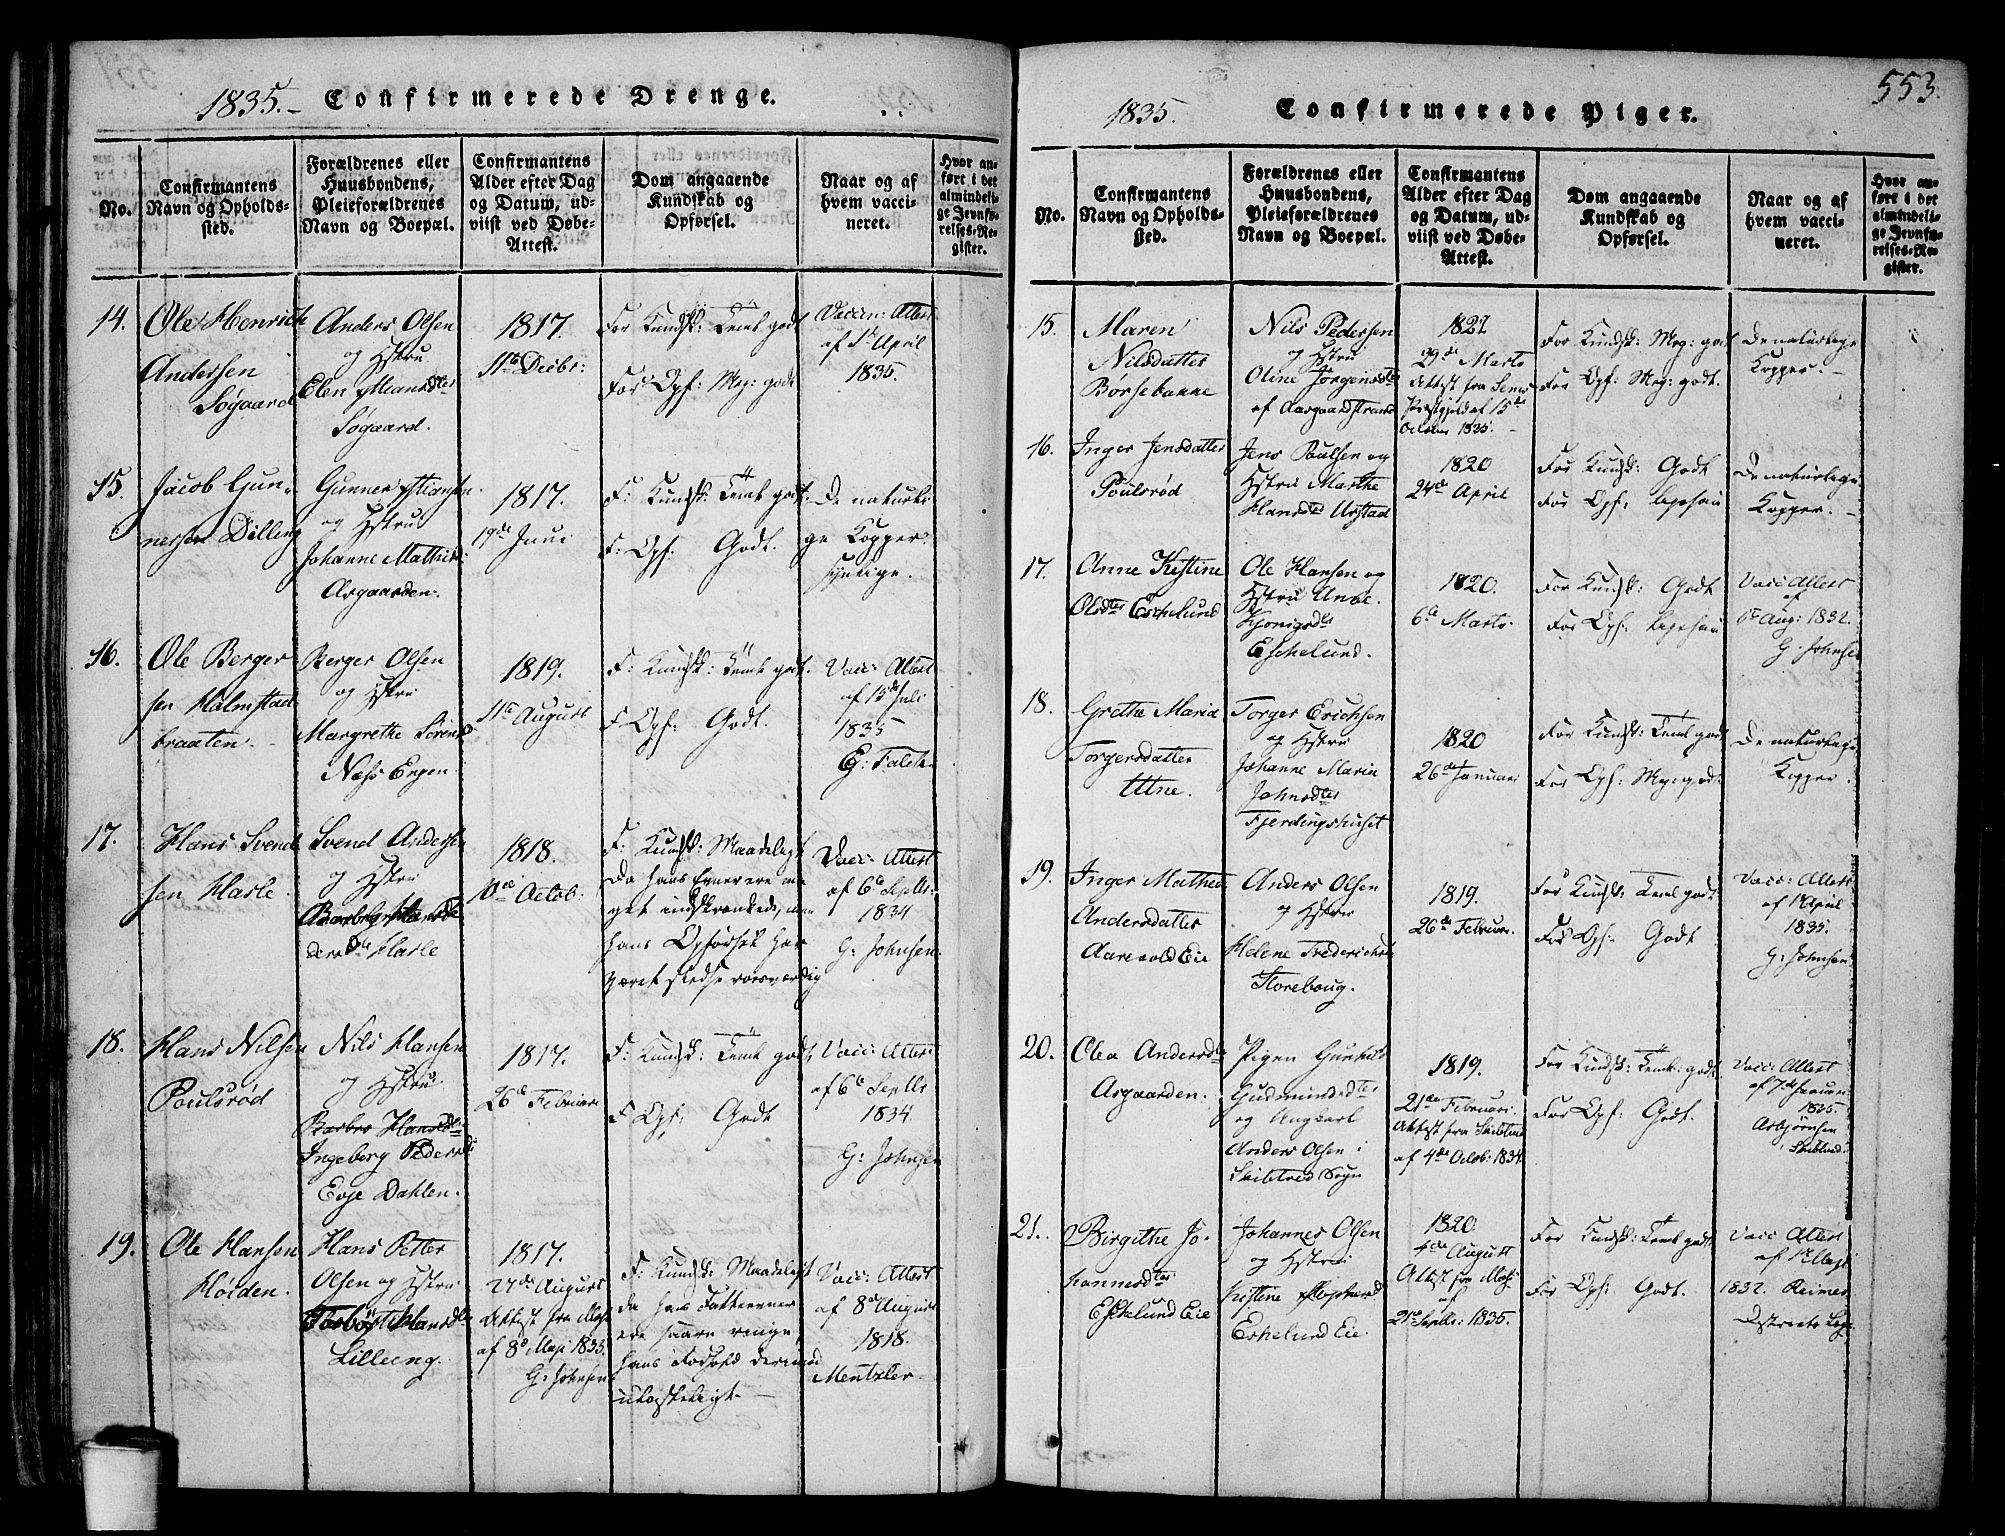 1835. Confirmerede Drenge.
No.
Confirmantens
Navn og Opholds-
sted.
Forældrenes eller
Huusbondens,
Pleieforældrenes
Navn og Boepæl.
Confirmantens
Alder efter Dag
og Datum, ud-
viist ved Døbe-
Attest.
Dom angaaende
Kundskab og
Opførsel.
Naar og af
hvem vacci-
neret.
Hvor an-
ført i det
almindeli-
ge Jevnfø-
relses-Re-
gister.
14.
Ole Henrich
Andersen
Søgaard
Anders Olsen
og Hstru
Elen
Søgaard.
1817.
11te Decbr:
For Kundsk: Teml godt
For Opf: Meg: godt
Vaccn: Attest
af 1t April
1835.
15.
Jacob Gun-
nersen Dilling
Gunner
og Hstru
Johanne
Asgaarden.
1817.
19de Juni
F: Kundsk: Teml godt
F: Opf: Godt.
De naturli-
ge Kopper
synlige.
16.
Ole Berger
sen Halmstad
braaten.
Berger Olsen
og Hstru
Margrethe Sørens
Næss Engen
1819.
11te August
F: Kundsk: Teml godt.
F Opf: Godt.
Vacc: Attest
af 15de Juli
1835
G: Falch
17.
Hans Svend
sen Karle.
Svend Andersen
og Hstru
Karle
1818.
10de Octob:
F: Kundsk: Maadeligt
da hans Evner ere me
get indskrænkede, men
hans Opførsel har
været stedse roesværdig
Vacc: Attest
af 6te Septbr:
1834
G: Johnsen.
18.
Hans Nilsen
Poulsrød
Nils Hansen
og Hstru
Barbro Hansdtr
Ingeborg Pedersd
Evje Dahlen.
1817.
26de Februari
F: Kundsk: Teml godt
F: Opf: Godt
Vacc: Attest
af 6te Septbr
1834.
G: Johnsen
19.
Ole Hansen
Høiden.
Hans Petter
Olsen og Hstru
Lilleeng.
1817.
27de August
Attest fra Moss
af 8de Maji 1835.
G: Johnsen
F: Kundsk: Maadeligt
da hans Fatteevner
ere saare ringe,
hans Forhold derimod
ulasteligt.
Vacc: Attest
af 8de August
1818.
Mentzler.
1835. Confirmerede Piger. 553.
No.
Confirmantens
Navn og Opholds-
sted.
Forældrenes eller
Huusbondens,
Pleieforældrenes
Navn og Boepæl.
Confirmantens
Alder efter Dag
og Datum, ud-
viist ved Døbe-
Attest.
Dom angaaende
Kundskab og
Opførsel.
Naar og af
hvem vacci-
neret.
Hvor an-
ført i det
almindeli-
ge Jevnfø-
relses-Re-
gister.
15.
Maren
Nilsdatter
Børsebanne
Nils Pedersen
og Hstru
Oline Jørgensdtr
af Aasgaardstrand
29de Marts
Attest fra Sems
Præstgjeld af 15de
October 1835.
For Kundsk: Meg: godt
For Opf: Meg: godt.
De naturlige
Kopper.
16.
Inger Jensdatter
Poulsrød
Jens Poulsen og
Hstru Marthe
Hansdtr Urstad
1820
24de April
For Kundsk: Godt
For Opf:
De naturlige
Kopper.
17.
Anne Kistine
Olsdtr Eschelund
Ole Hansen og
Hstru Anne
Eschelund.
1820.
6te Marts
For Kundsk: Godt
For Opf:
Vacc: Attest
af
6te Aug: 1832.
G: Johnsen
18.
Grethe Maria
Torgersdatter
Utne.
Torger Erichsen
og Hstru
Johanne Maria
Johnsdtr
Fjerdingshuset
1820
26de Januari
For Kundsk: Teml godt
For Opf: Mg: godt
De naturlige
Kopper.
19.
Inger Mathea
Andersdatter
Aarevold Eie
Anders Olsen
og Hstru
Helene Frederichs
Storebaug.
1819.
26de Februari.
For Kundsk: Teml godt
For Opf: Godt
Vacc: Attest
af 1t April
1835.
G: Johnsen
20.
Olea Andersdtr
Asgaarden.
Pigen Gunhild
Gudmundsdtr
og Ungkarl
Anders Olsen i
Skibtved Sogn
1819.
21de Februari.
Attest fra Skibtved
af 4de Octob: 1834
For Kundsk: Teml: godt.
For Opf: Godt.
Vacc: Attest
af 7de Januari
1835.
Asbjørnsen
Skibtved
21.
Birgithe Jo-
hannesdtr
Eschelund Eie
Johannes Olsen
og Hstru
Kistine
Eschelund Eie.
1820
4de August
Attest fra Moss
af
21de Septbr: 1835.
For Kundsk: Teml godt,
For Opf: Godt.
Vacc: Attest
af
1832. Reimer
Districts Læge